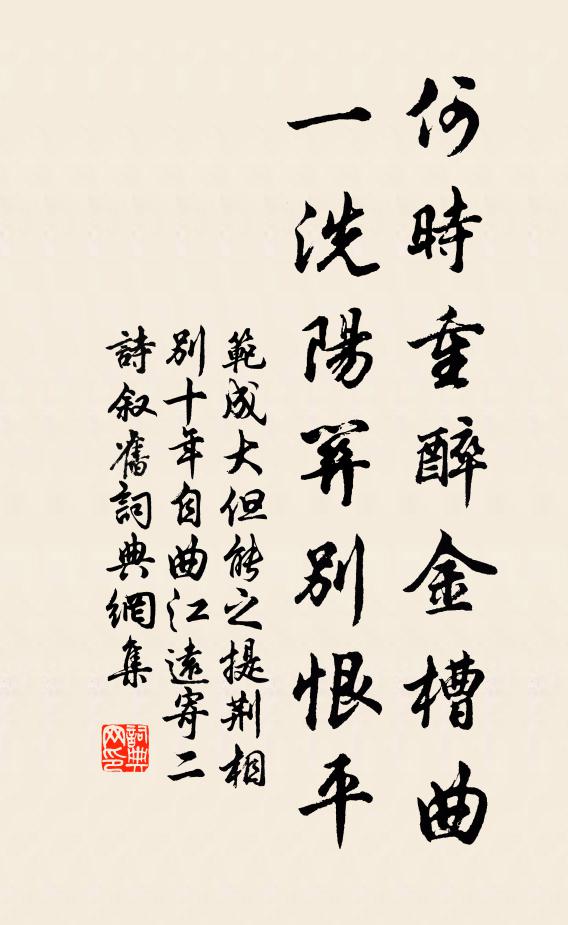 何時重醉金槽曲
一洗陽関別恨平
範成大但能之提荆相
别十年自曲江遠寄二
詩叙舊詞典網集
詞典
网印